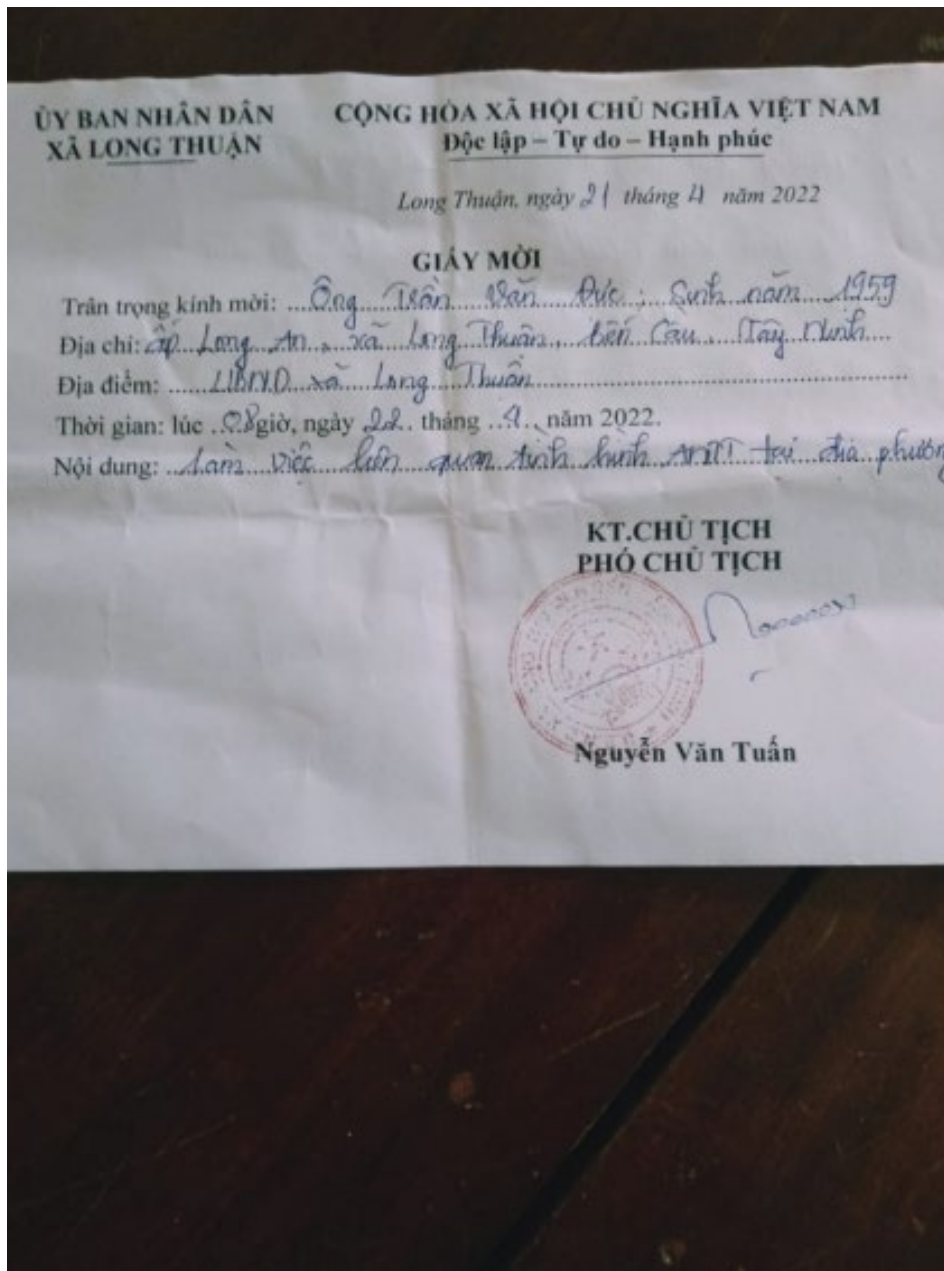 ỦY BAN NHÂN DÂN
XÃ LONG THUẬN
CỘNG HÒA XÃ HỘI CHỦ NGHĨA VIỆT NAM
Độc lập – Tự do – Hạnh phúc
Long Thuận, ngày 21 tháng 4 năm 2022
GIẤY MỜI
Trân trọng kính mời: Ông Trần Văn Đức; Sinh năm 1959
Địa chỉ: ấp Long An, xã Long Thuận, Bến Cầu, Tây Ninh
Địa điểm: UBND xã Long Thuận
Thời gian: lúc 08 giờ, ngày 22 tháng 4 năm 2022.
Nội dung: Làm việc liên quan tình hình ANTT tại địa phương
KT.CHỦ TỊCH
PHÓ CHỦ TỊCH
Nguyễn Văn Tuấn